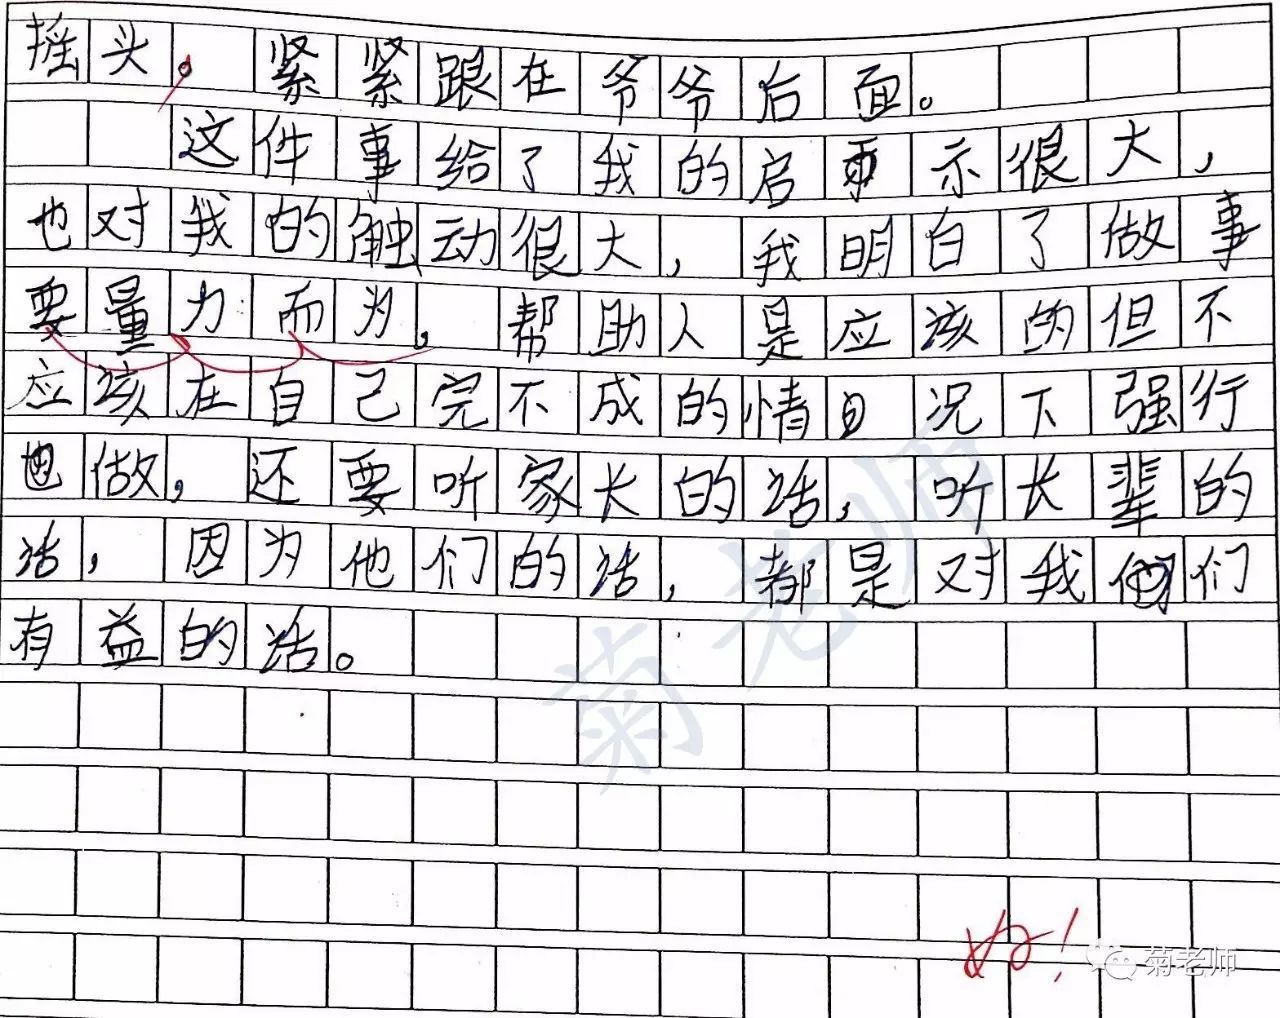 摇头。紧紧跟在爷爷后面。
这件事给了我的启示很大，
也对我的触动很大，我明白了做事
要量力而为。帮助人是应该的但不
应该在自己完不成的情况下强行
做，还要听家长的话，听长辈的
话，因为他们的话，都是对我们
有益的话。
好！
菊老师
菊老师